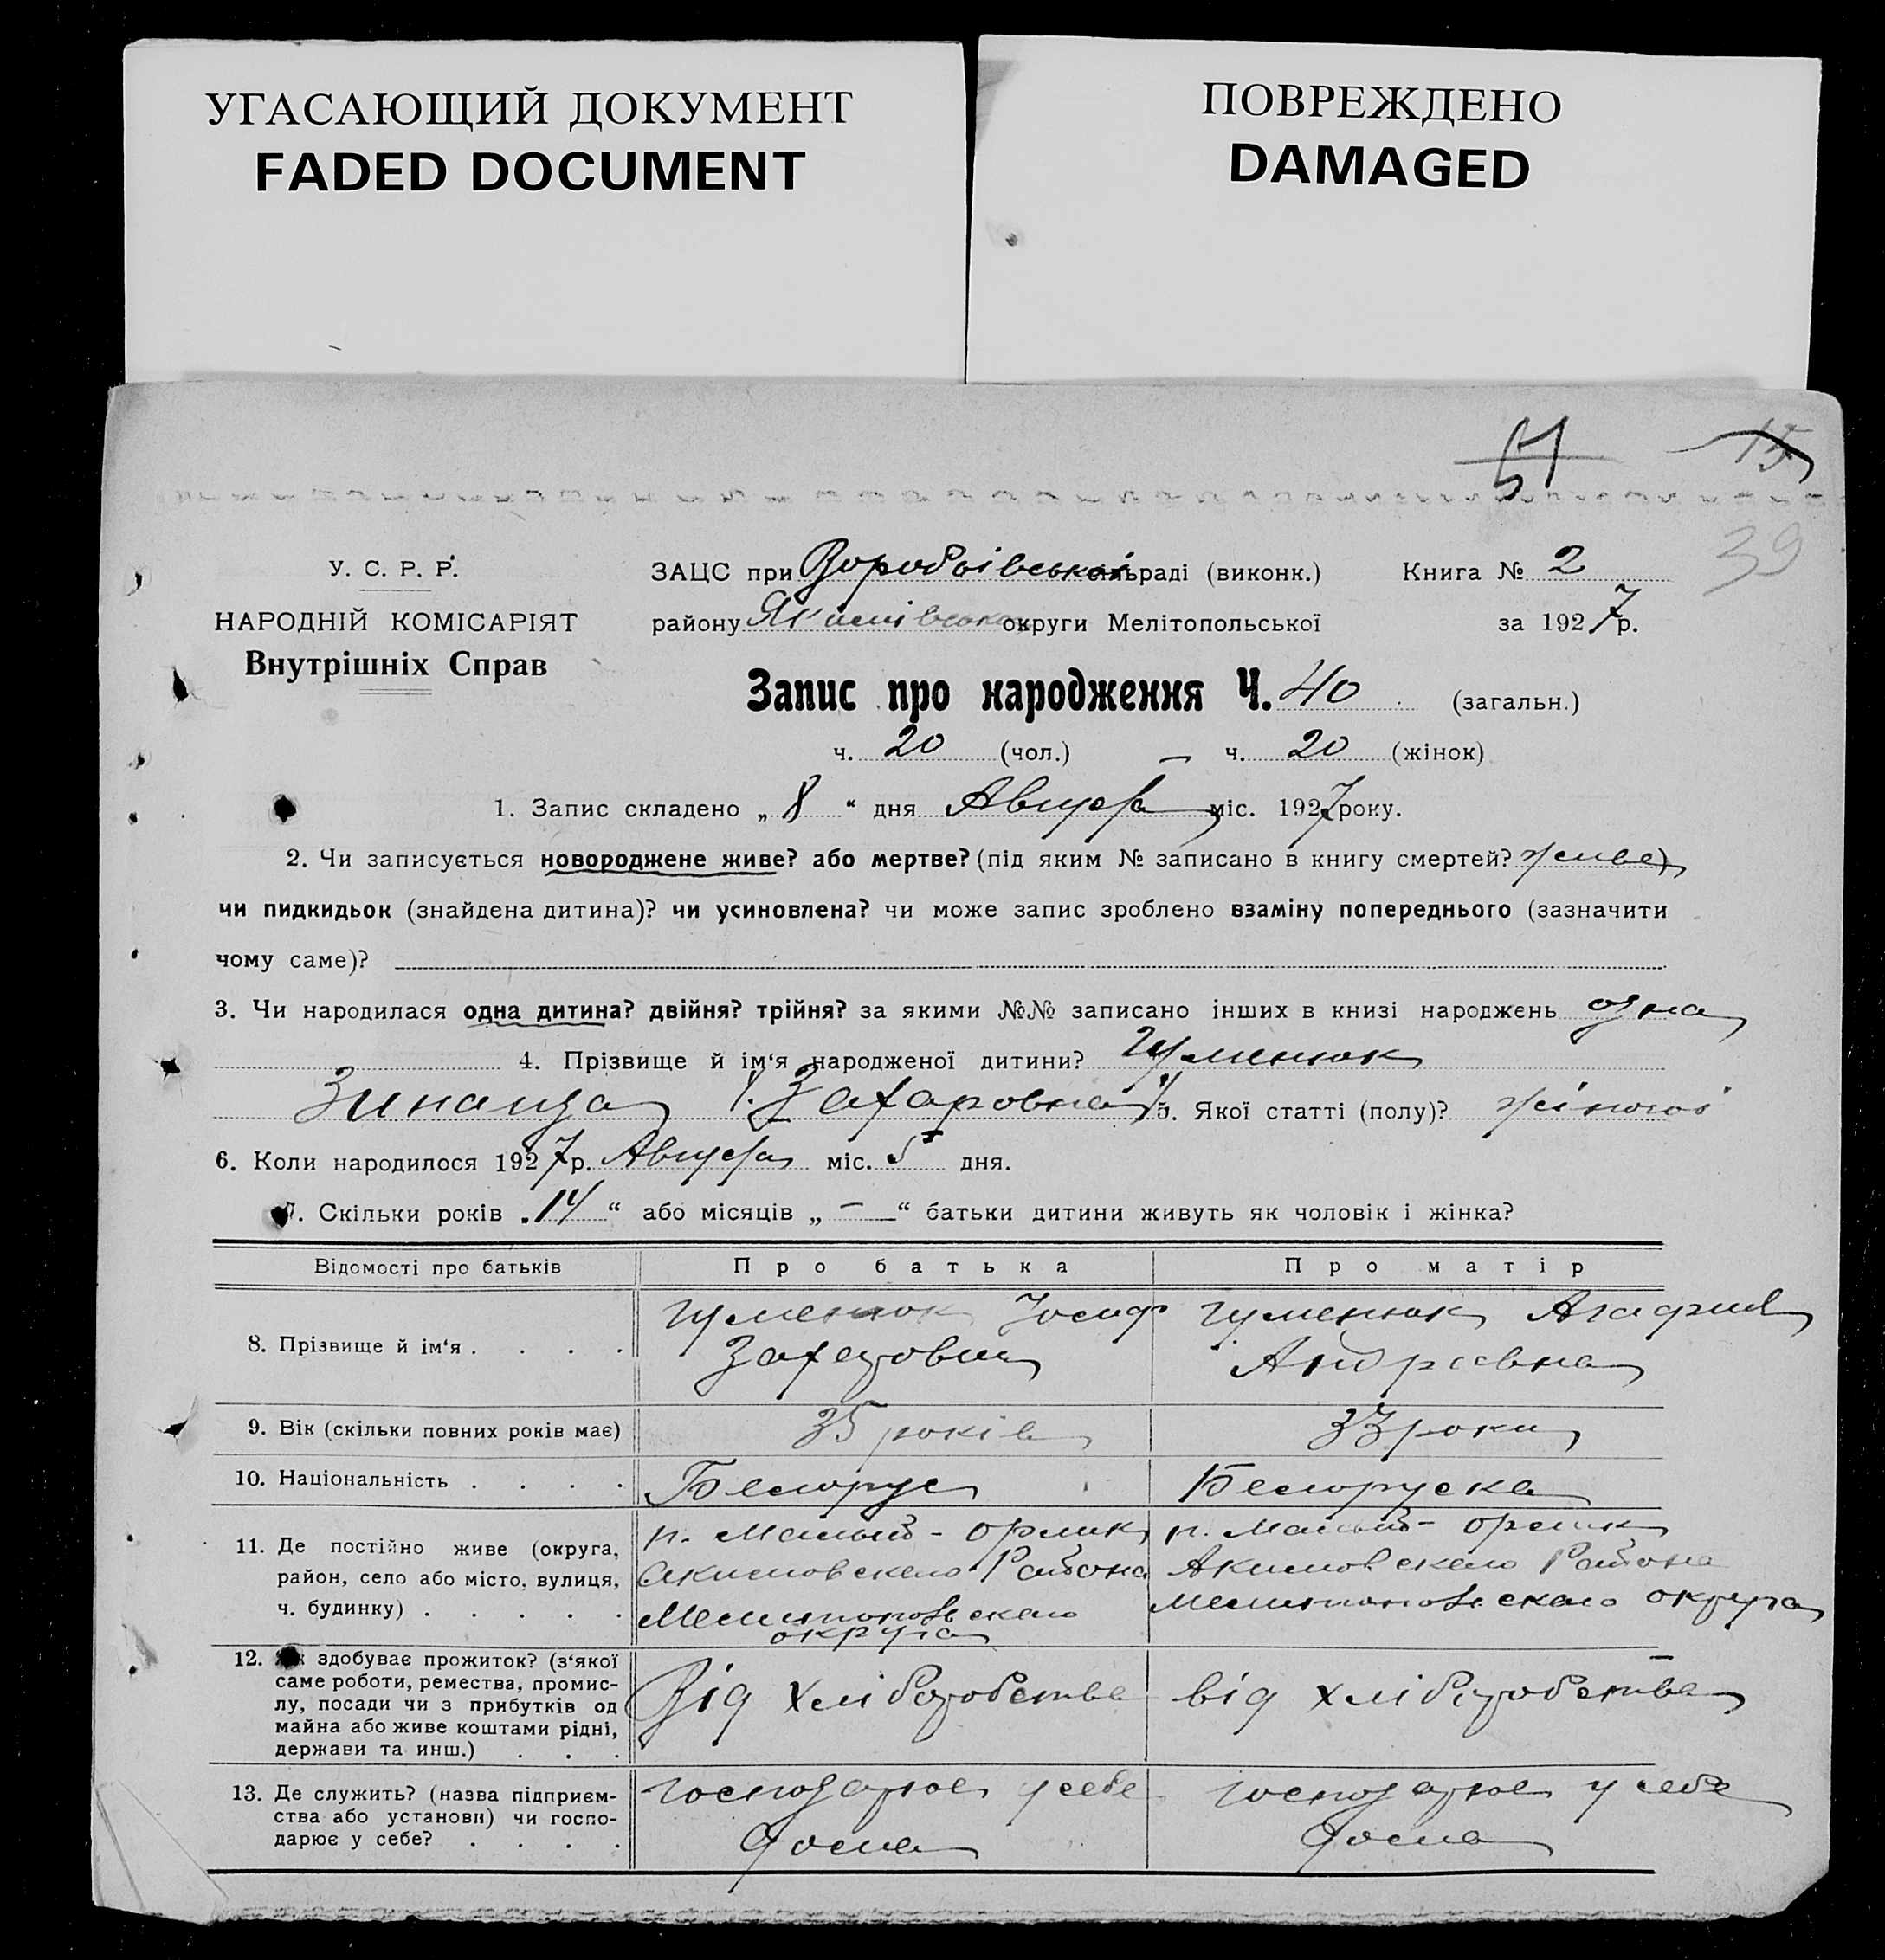 УГАСАЮЩИЙ ДОКУМЕНТ
FADED DOCUMENT
ПОВРЕЖДЕНО
DAMAGED
51
15
39
У. С. Р. Р.
НАРОДНІЙ КОМІСАРІЯТ
Внутрішніх Справ
ЗАЦС при Воробьівській раді (виконк.) Книга № 2
району Якимівської округи Мелітопольської за 1927 р.
Запис про народження Ч. 40 (загальн.)
ч. 20 (чол.) — ч. 20 (жінок)
1. Запис складено „ 8 “ дня Августа міс. 1927 року.
2. Чи записується новороджене живе? або мертве? (під яким № записано в книгу смертей? живе)
чи пидкидьок (знайдена дитина)? чи усиновлена? чи може запис зроблено взаміну попереднього (зазначити
чому саме)?
3. Чи народилася одна дитина? двійня? трійня? за якими №№ записано інших в книзі народжень одна
4. Прізвище й ім‘я народженої дитини? Гуменюк
Зинаида Захаровна 5. Якої статті (полу)? жіночої
6. Коли народилося 1927 р. Августа міс. 5 дня.
7. Скільки років „ 14 “ або місяців „ — “ батьки дитини живуть як чоловік і жінка?
Відомості про батьків Про батька Про матір
8. Прізвище й ім‘я . . . . Гуменюк Иосиф Гуменюк Агафия
Захарович Андреевна
9. Вік (скільки повних років має) 35 років 33 роки
10. Національність . . . . Белорус Белоруска
11. Де постійно живе (округа, п. Малый-Орлик п. Малый-Орлик
район, село або місто, вулиця, Акимовского Района Акимовского Района
ч. будинку) . . . . . Мелитопольского Мелитопольского округа
округа
12. здобуває прожиток? (з‘якої
саме роботи, ремества, промис-
лу, посади чи з прибутків од Від хліборобства від хліборобства
майна або живе коштами рідні,
держави та инш.) . . .
13. Де служить? (назва підприєм- господарює у себе господарює у себе
ства або установи) чи госпо- дома дома
дарює у себе? . . . .